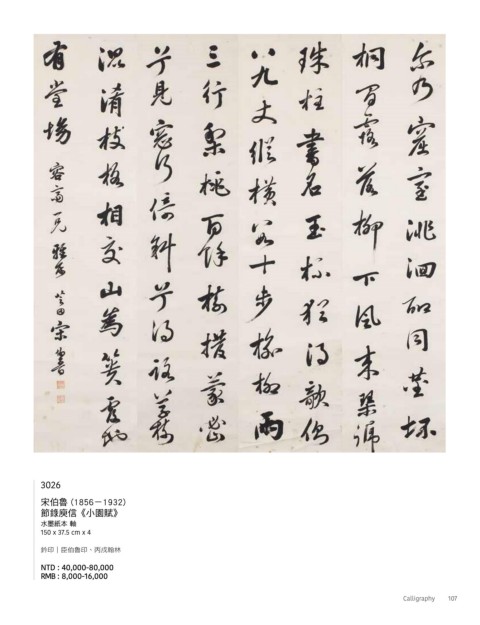 尔乃窟室徘徊聊同鑿坏
桐間露落柳下風來琴號
珠柱書名玉杯猶得欹側
八九丈縱橫數十步榆柳兩
三行梨桃百餘樹撥蒙密
兮見窓行倚斜兮得路草樹
混淆枝格相交山為簣覆地
有堂坳
芝田宋伯魯
3026
宋伯魯 (1856－1932)
節錄庾信《小園賦》
水墨紙本 軸
150 x 37.5 cm x 4
鈐印｜臣伯魯印、丙戌翰林
NTD : 40,000-80,000
RMB : 8,000-16,000
Calligraphy 107